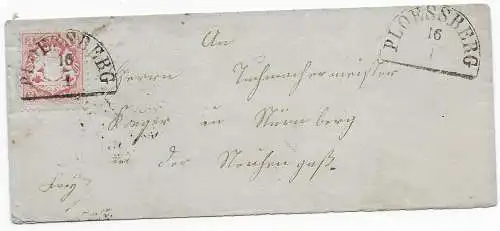 PLOESSBERG
16
1
PLOESSBERG
16
1
An
Herrn Tuchmachermeister
in Nürnberg
in der Neuhengaß.
Frey